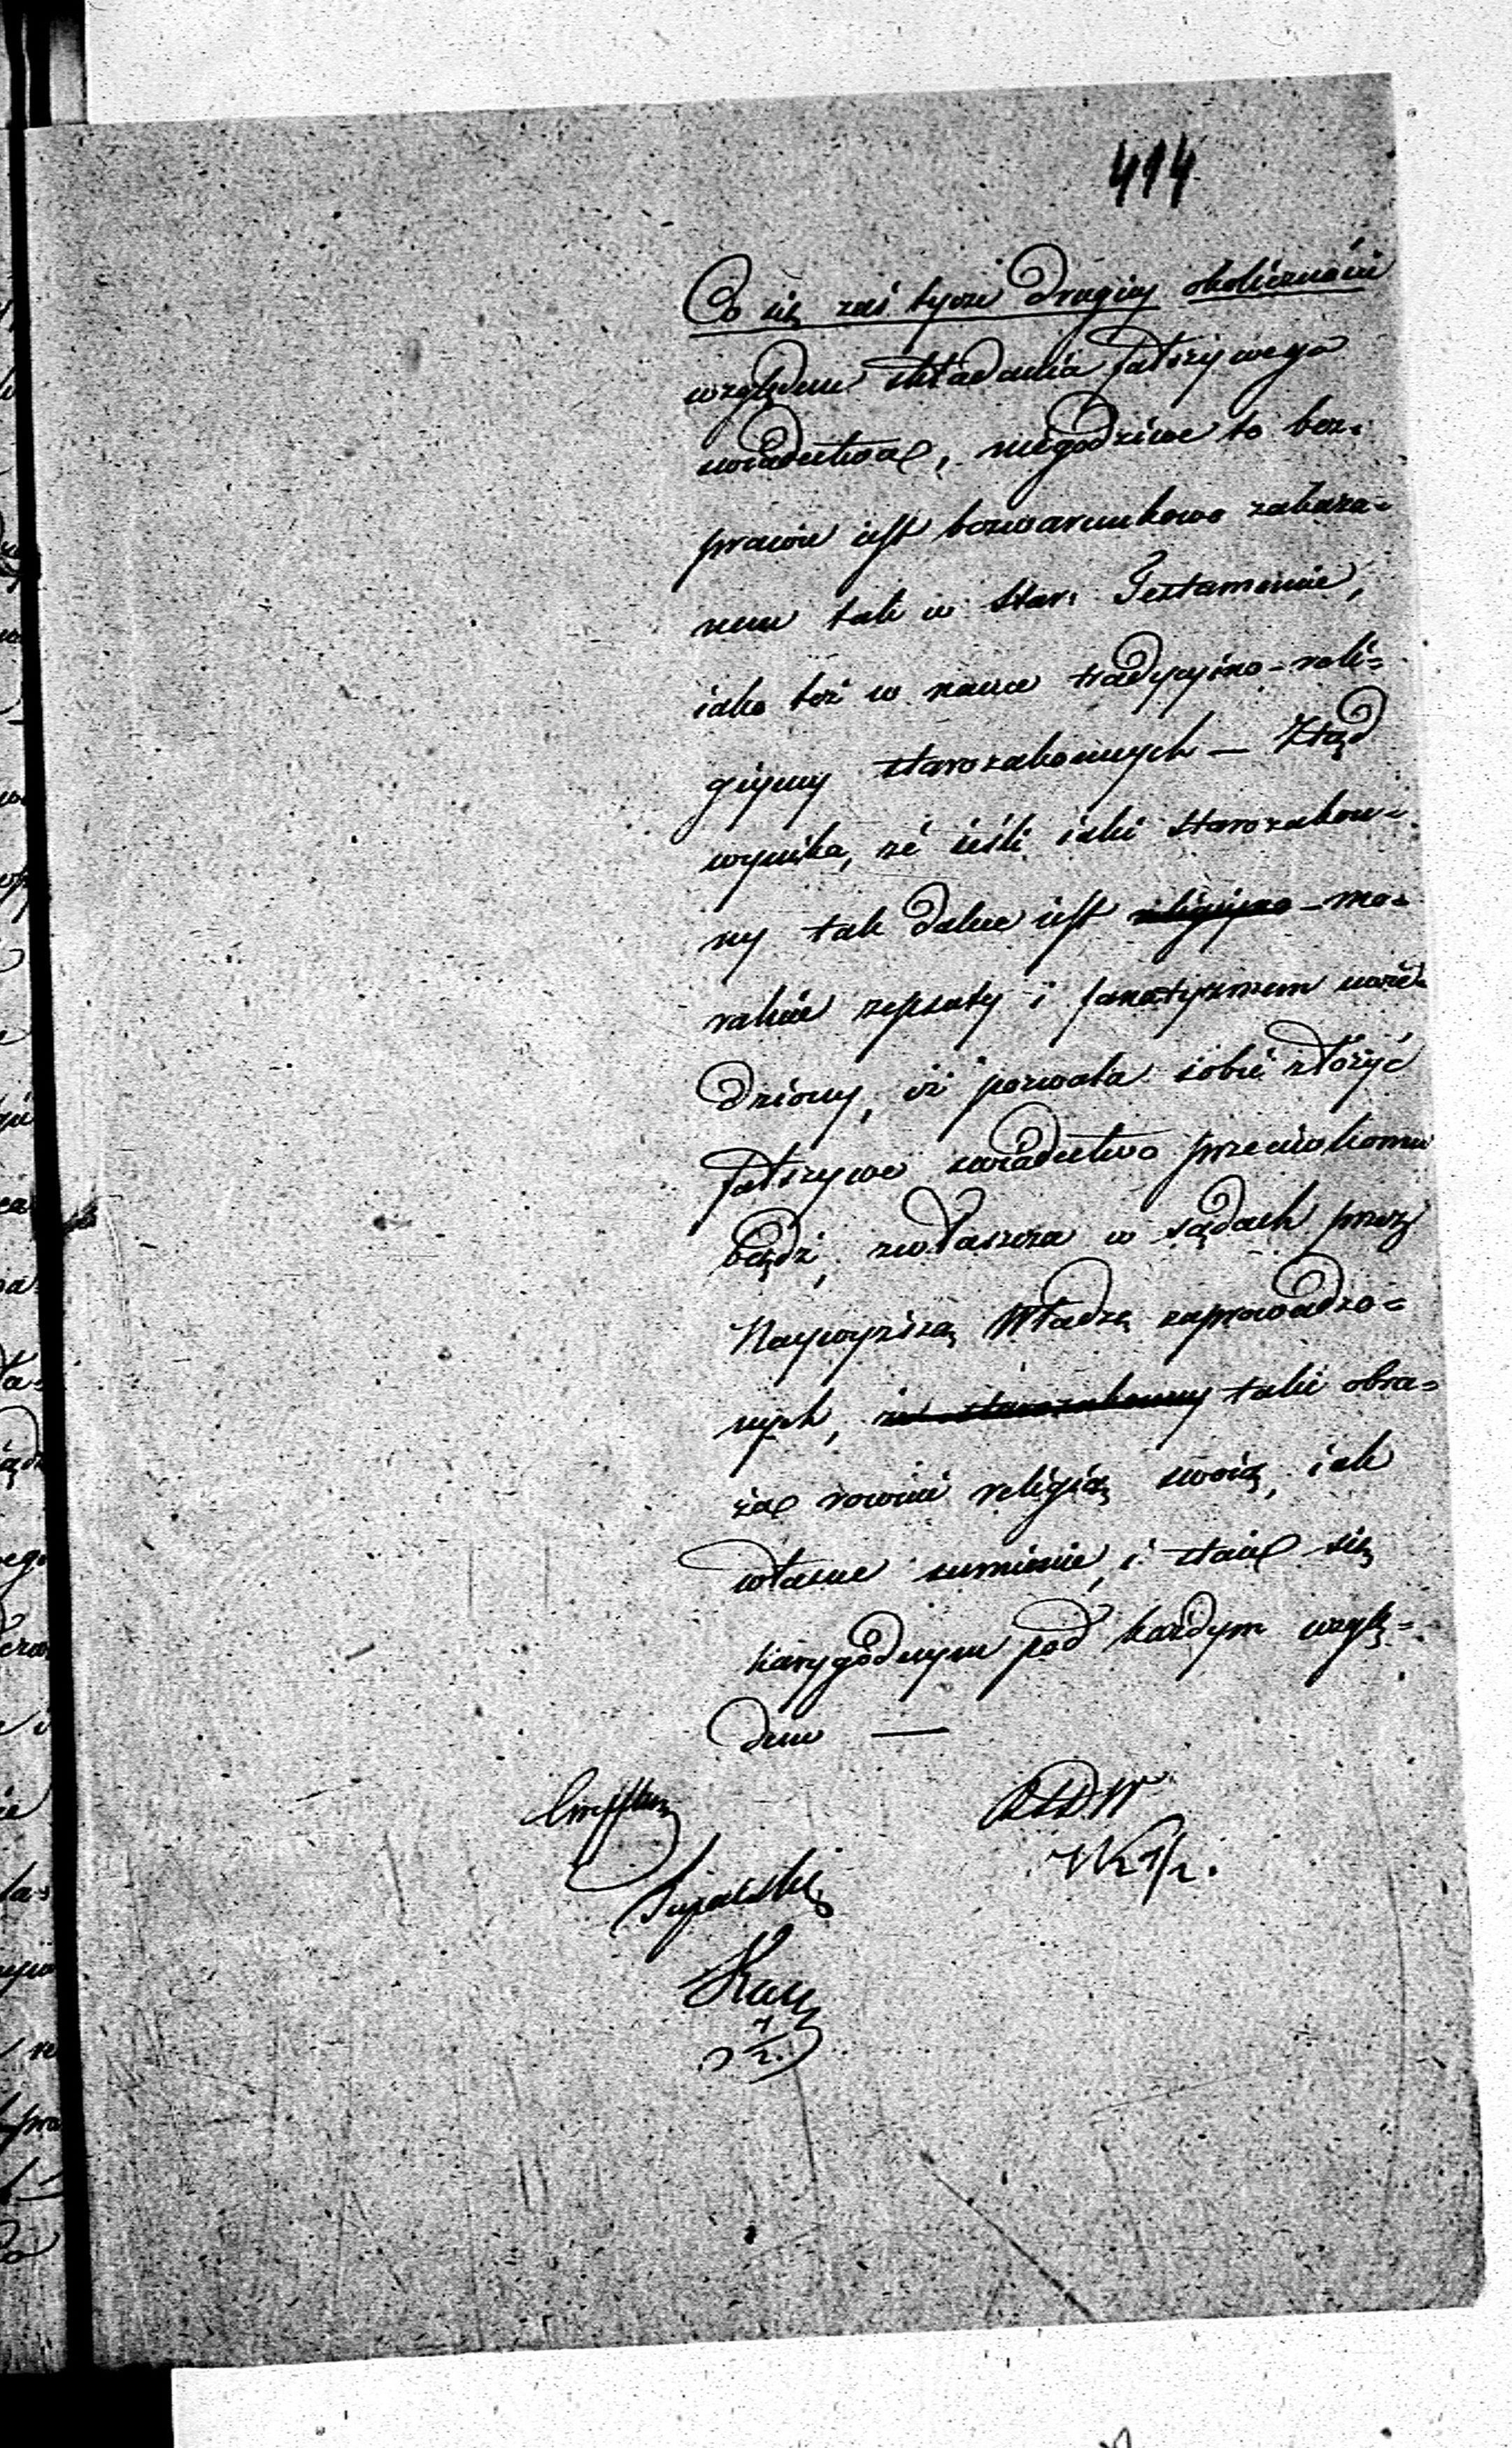 414
Co się zaś tycze drugiey okoliczności
względem składania fałszywego
świadectwa, niegodziwe to bez-
prawie iest bezwarunkowo zakaza=
nem tak w Star. Testamencie,
iako też w nauce tradycyino-reli=
giyney starozakonnych — Ztąd
wynika, że ieśli iaki starozakon=
ny tak dalece iest religiyno-mo=
ralnie zepsuty i fanatyzmem uwie=
dziony, iż pozwala sobie złożyć
fałszywe świadectwo przeciw komu
bądź, zwłaszcza w sądach przez
Naywyższą Władzę zaprowadzo=
nych, że starozakonny taki obra=
ża rownie religią swoią, iak
własne sumienie, i staie się
karygodnym pod każdym wzglę=
dem —